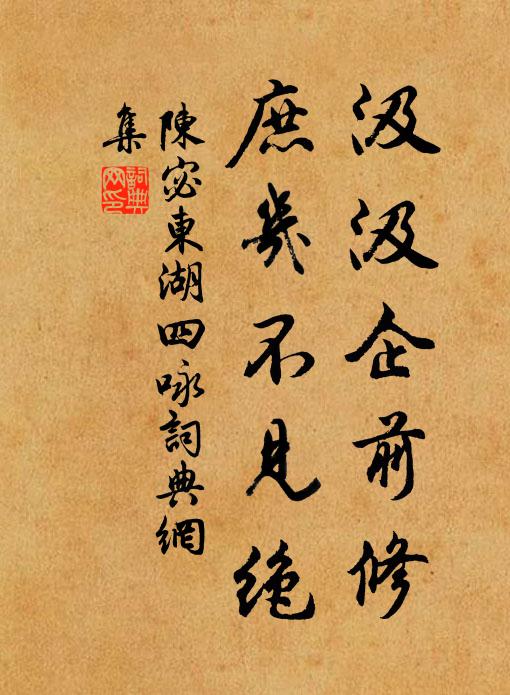 汲汲企前修
庶幾不見絶
陳宓東湖四咏詞典網
集
詞典
网印